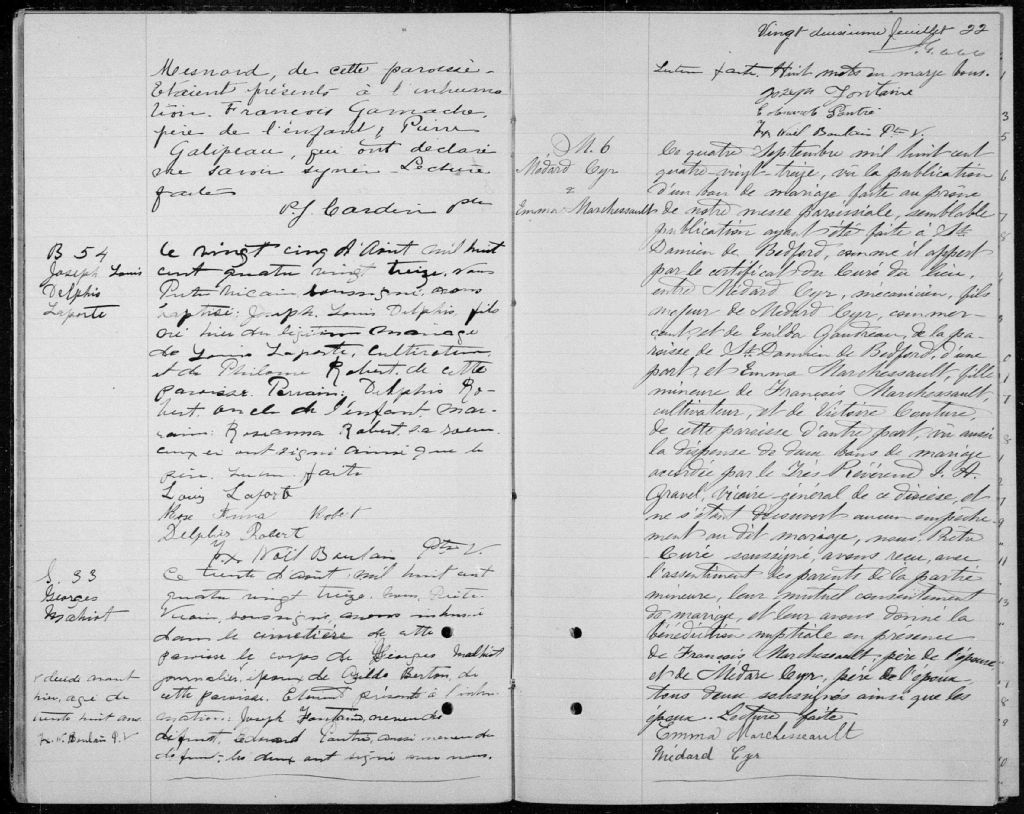 Mesnard, de cette paroisse.
Etaient présents à l'inhuma
tion. Francois Gamache,
père de l'enfant, Pierre
Galipeau, qui ont déclaré
ne savoir signer. Lecture
faite
P.J. Cardin ptre
B 54
Joseph Louis
Delphis
Laporte
Le vingt cinq d'Aout mil huit
cent quatre vingt treize, nous
Pretre Vicaire soussigné avons
baptisé Joseph Louis Delphis, fils
né hier du légitime mariage
de Louis Laporte, cultivateur,
et de Philomene Robert de cette
paroisse. Parrain: Delphis Ro-
bert oncle de l'enfant mar-
raine: Roseanna Robert sa soeur
ceux ci ont signé ainsi que le
père. Lecture faite
Louis Laporte
Rose Anna Robert
Delphis Robert
Fx Noël Beulac Ptre V.
S. 33
Georges
Mahiot
Ce trente d'août mil huit cent
quatre vingt treize, nous, Prêtre
Vicaire, soussigné, avons inhumé
dans le cimetière de cette
paroisse le corps de Georges
journalier, époux de Berton, de
cette paroisse. Etaient présents à l'inhu-
mation: Joseph Fontaine,
défunt, Edouard aussi
défunt, les deux ont signé avec nous.
décédé avant
hier, agé de
huit ans
Vingt deuxième feuillet 22
Lecture faite. Huit mots en marge bons.
Joseph Fontaine
Edouard
Fx Noël Ptre V.
M. 6
Médard Cyr
&
Emma Marchessault
Ce quatre Septembre mil huit cent
quatre-vingt-treize, vu la publication
d'un ban de mariage faite au prône
de notre messe paroissiale, semblable
publication ayant été faite à St.
Damien de Bedford, comme il appert
par le certificat du Curé du lieu,
entre Médard Cyr, mécanicien, fils
majeur de Médard Cyr, commer-
cant, et de Enilda Gaudreau, de la pa-
roisse de St. Damien de Bedford, d'une
part, et Emma Marchessault, fille
mineure de François Marchessault,
cultivateur, et de Victoire Couture
de cette paroisse d'autre part, vu aussi
la dispense de deux bans de mariage
accordée par le Très Révérend J. A.
Gravel, vicaire général de ce diocèse, et
ne s'étant découvert aucun empêche
ment au dit mariage, nous Prêtre
Curé soussigné, avons reçu, avec
l'assentiment des parents de la partie
mineure, leur mutuel consentement
de mariage, et leur avons donné la
bénédiction nuptiale en présence
de François Marchessault, père de l'épouse
et de Médard Cyr, père de l'époux
tous deux soussignés ainsi que les
époux. Lecture faite
Emma Marchesseault
Médard Cyr